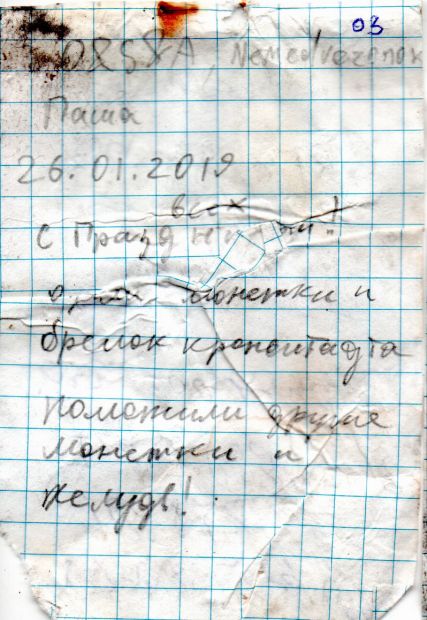 03
Nemedvezonok
Паша
26.01.2019
всех
С Праздником!
монетки и
брелок кронштадта
положили другие
монетки и
желудь!